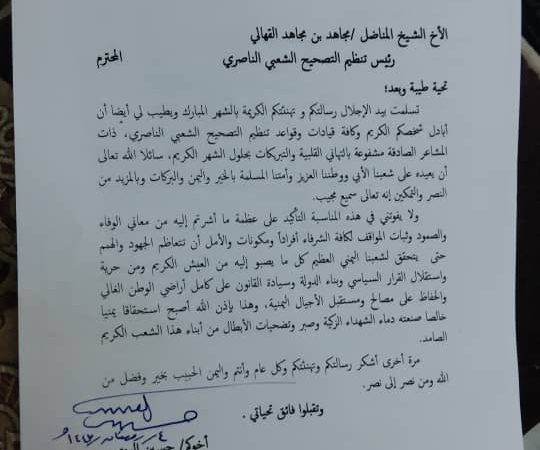 الأخ الشيخ المناضل /مجاهد بن مجاهد القهالي
رئيس تنظيم التصحيح الشعبي الناصري المحترم
تحية طيبة وبعد؛
تسلمت بيد الإجلال رسالتكم و تهنئتكم الكريمة بالشهر المبارك ويطيب لي أيضا أن
أبادل شخصكم الكريم وكافة قيادات وقواعد تنظيم التصحيح الشعبي الناصري، ذات
المشاعر الصادقة مشفوعة بالتهاني القلبية والتبريكات بحلول الشهر الكريم. سائلا الله تعالى
أن يعيده على شعبنا الأبي ووطننا العزيز وأمتنا المسلمة بالخير واليمن والبركات وبالمزيد من
النصر والتمكين إنه تعالى سميع مجيب.
ولا يفوتني في هذه المناسبة التأكيد على عظمة ما أشرتم إليه من معاني الوفاء
والصمود وثبات المواقف لكافة الشرفاء أفراداً ومكونات والأمل أن تتعاظم الجهود والهمم
حتى يتحقق لشعبنا اليمني العظيم كل ما يصبو إليه من العيش الكريم ومن حرية
واستقلال القرار السياسي وبناء الدولة وسيادة القانون على كامل أراضي الوطن الغالي
والحفاظ على مصالح ومستقبل الأجيال اليمنية، وهذا بإذن الله أصبح استحقاقا يمنيا
خالصا صنعته دماء الشهداء الزكية وصبر وتضحيات الأبطال من أبناء هذا الشعب الكريم
الصامد.
مرة أخرى أشكر رسالتكم وتهنئتكم وكل عام وأنتم واليمن الحبيب بخير وفضل من
الله ومن نصر إلى نصر.
وتقبلوا فائق تحياتي .
٤ رمضان
أخوكم/